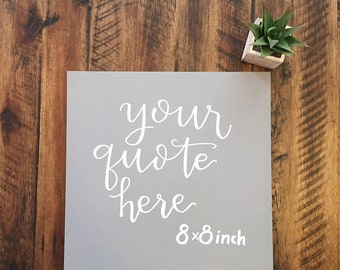 your
quote
here
8x8inch